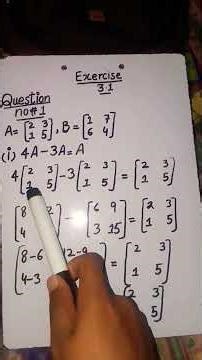 Exercise
3.1
Question
no#1
A = [2 3 1 5], B = [1 7 6 4]
(i) 4A - 3A = A
4 [2 3 1 5] - 3 [2 3 1 5] = [2 3 1 5]
[8 2 4] - [6 9 3 15] = [2 3 1 5]
[8-6 12-9 4-3] = [2 3 1 5]
2 3
5